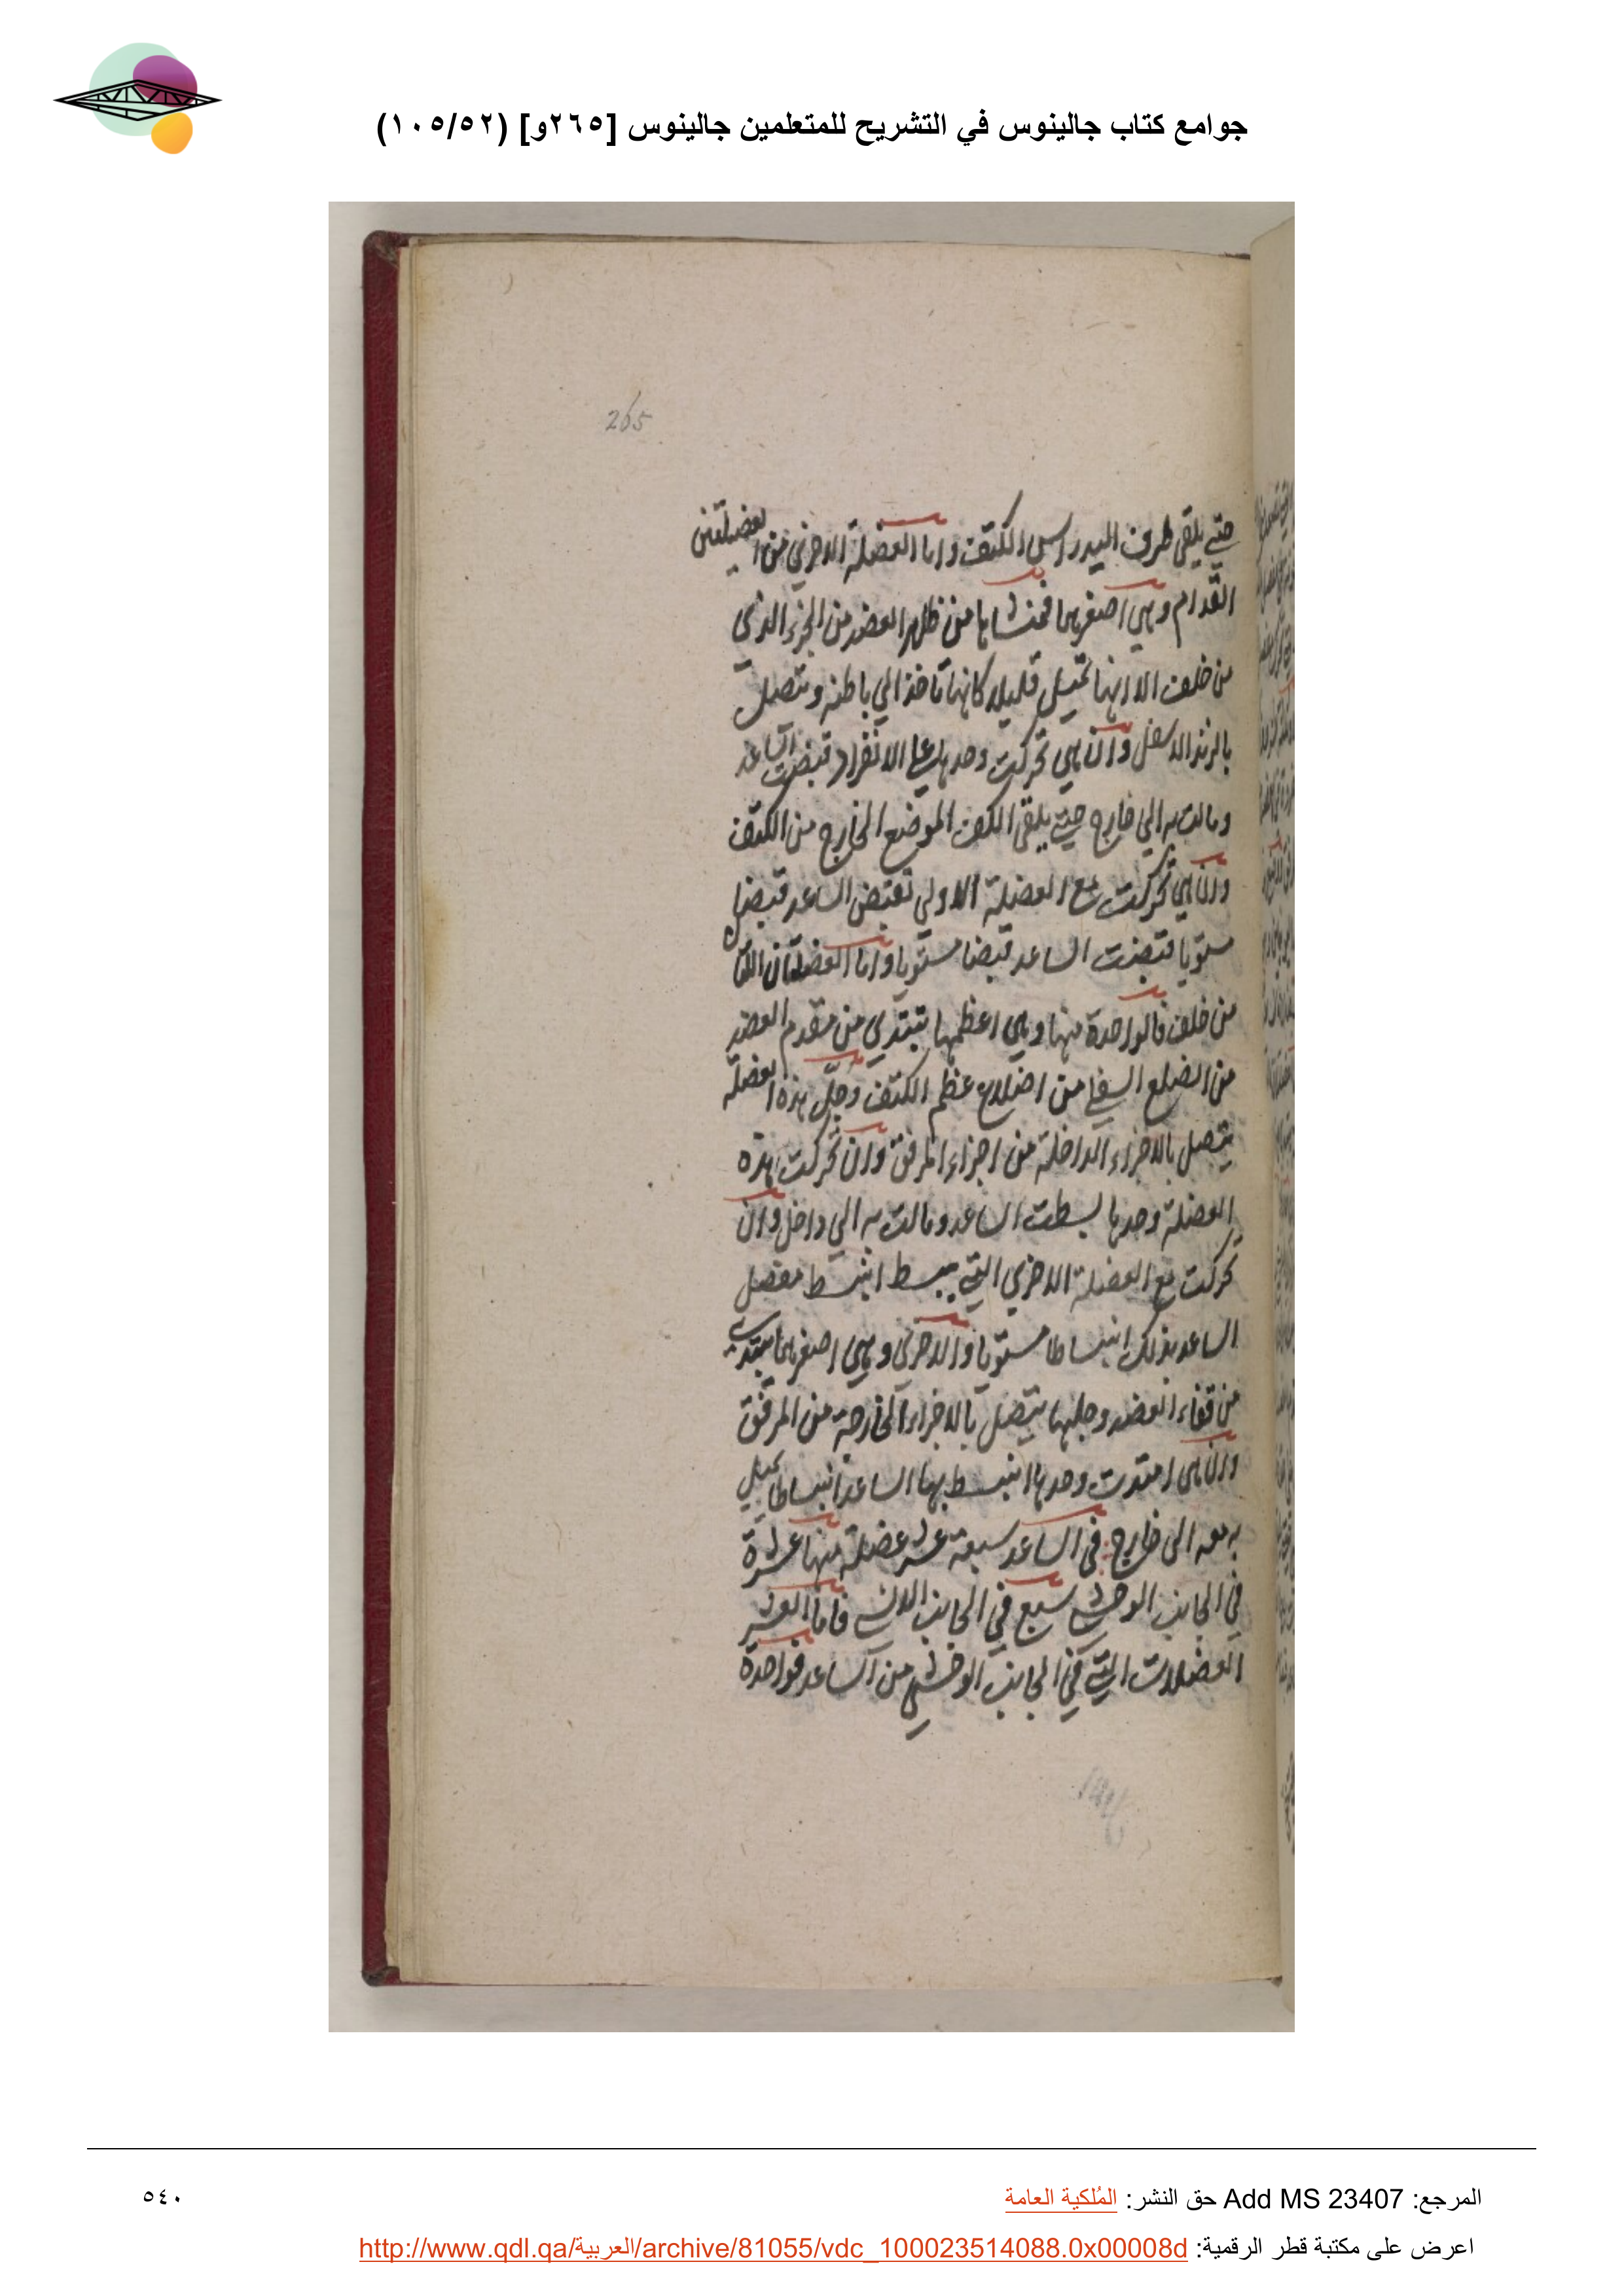 جوامع كتاب جالينوس في التشريح للمتعلمين جالينوس [٢٦٥و] (١٠٥/٥٢)
265
حتى يلقي طرف اليد راس الكتف واما العضلة الاخرى من العضلتين
القدام وهي اصغرهما فمنشاها من ظهر العضد من الجزء الذي
من خلف الا انها تميل قليلا كانها تاخذ الي باطنه وتتصل
بالزند الاسفل وان هي تحركت وحدها على الانفراد قبضت الساعد
ومالت به الي خارج حتى يلقي الكف الموضع الخارج من الكتف
وان هي تحركت مع العضلة الاولي تقبض الساعد قبضا
مستويا قبضت الساعد قبضا مستويا واما العضلتان اللتان
من خلف فالواحدة منها وهي اعظمها تبتدي من مقدم العضد
من الضلع السفلي من اضلاع عظم الكتف وجل هذه العضلة
يتصل بالاجزاء الداخلة من اجزاء المرفق وان تحركت هذه
العضلة وحدها بسطت الساعد ومالت به الي داخل وان
تحركت مع العضلة الاخري التي تبسط انبسط مفصل
الساعد بذلك انبساطا مستويا والاخري وهي اصغرهما تبتدي
من قفاء العضد وجلها يتصل بالاجزاء الخارجة من المرفق
وان هي امتدت وحدها انبسط بها الساعد انبساطا يميل
به معه الى خارج في الساعد سبعة عشر عضلة منها عشرة
في الجانب الوحشي سبع في الجانب الانسي فاما العشر
العضلات التي في الجانب الوحشي من الساعد فواحدة
المرجع: Add MS 23407 حق النشر: المُلكية العامة
٥٤٠
اعرض على مكتبة قطر الرقمية: http://www.qdl.qa/العربية/archive/81055/vdc_100023514088.0x00008d